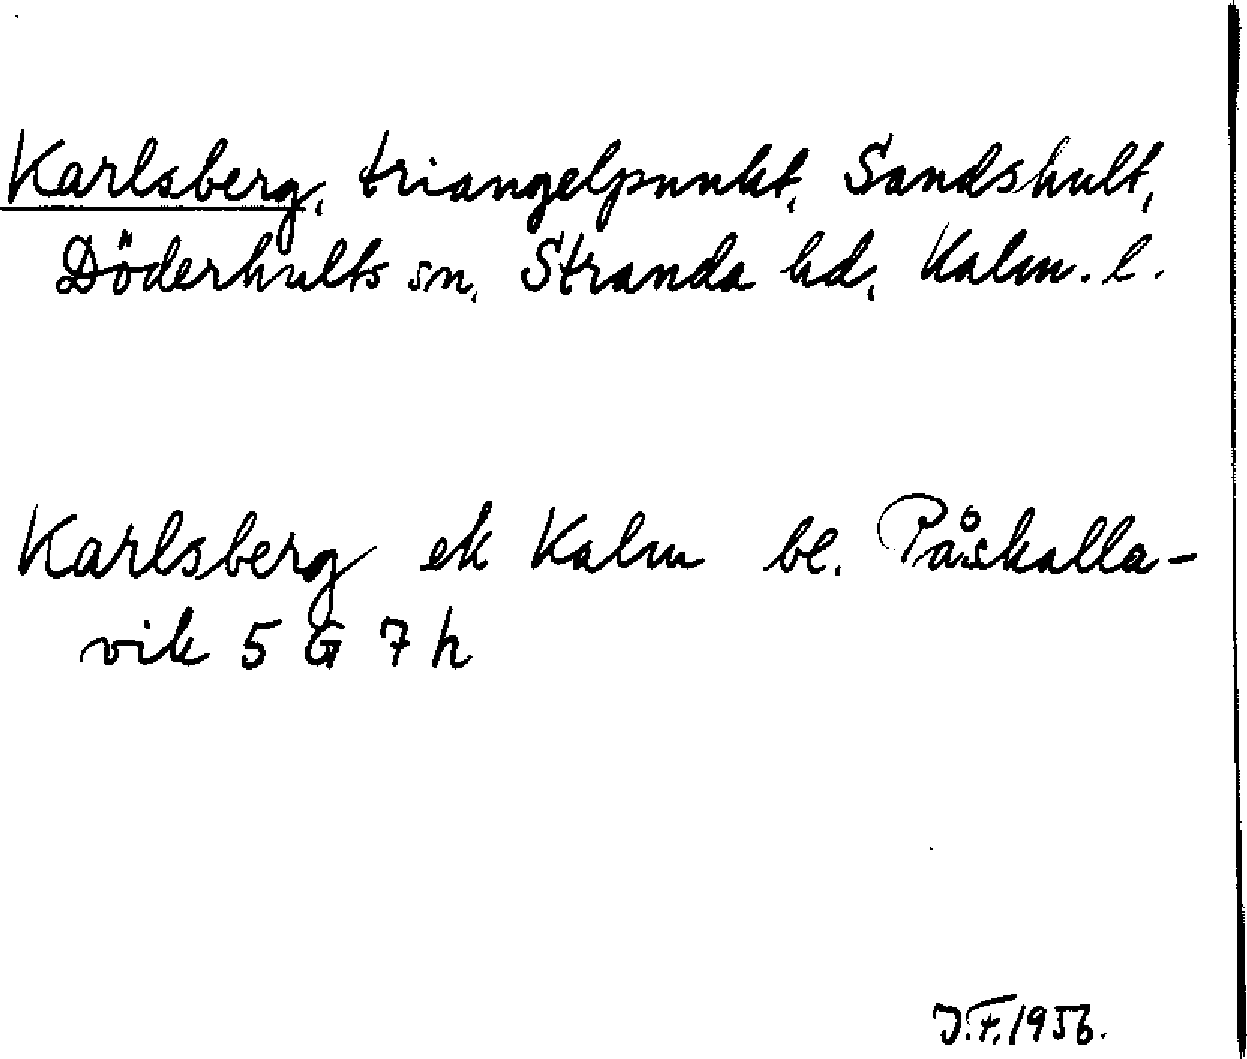 Karlsberg, triangelpunkt, Sandshult,
Döderhults sn, Stranda hd, Kalm. l.
Karlsberg ek Kalm bl. Påskalla-
vik 5 G 7 h
J.F. 1956.